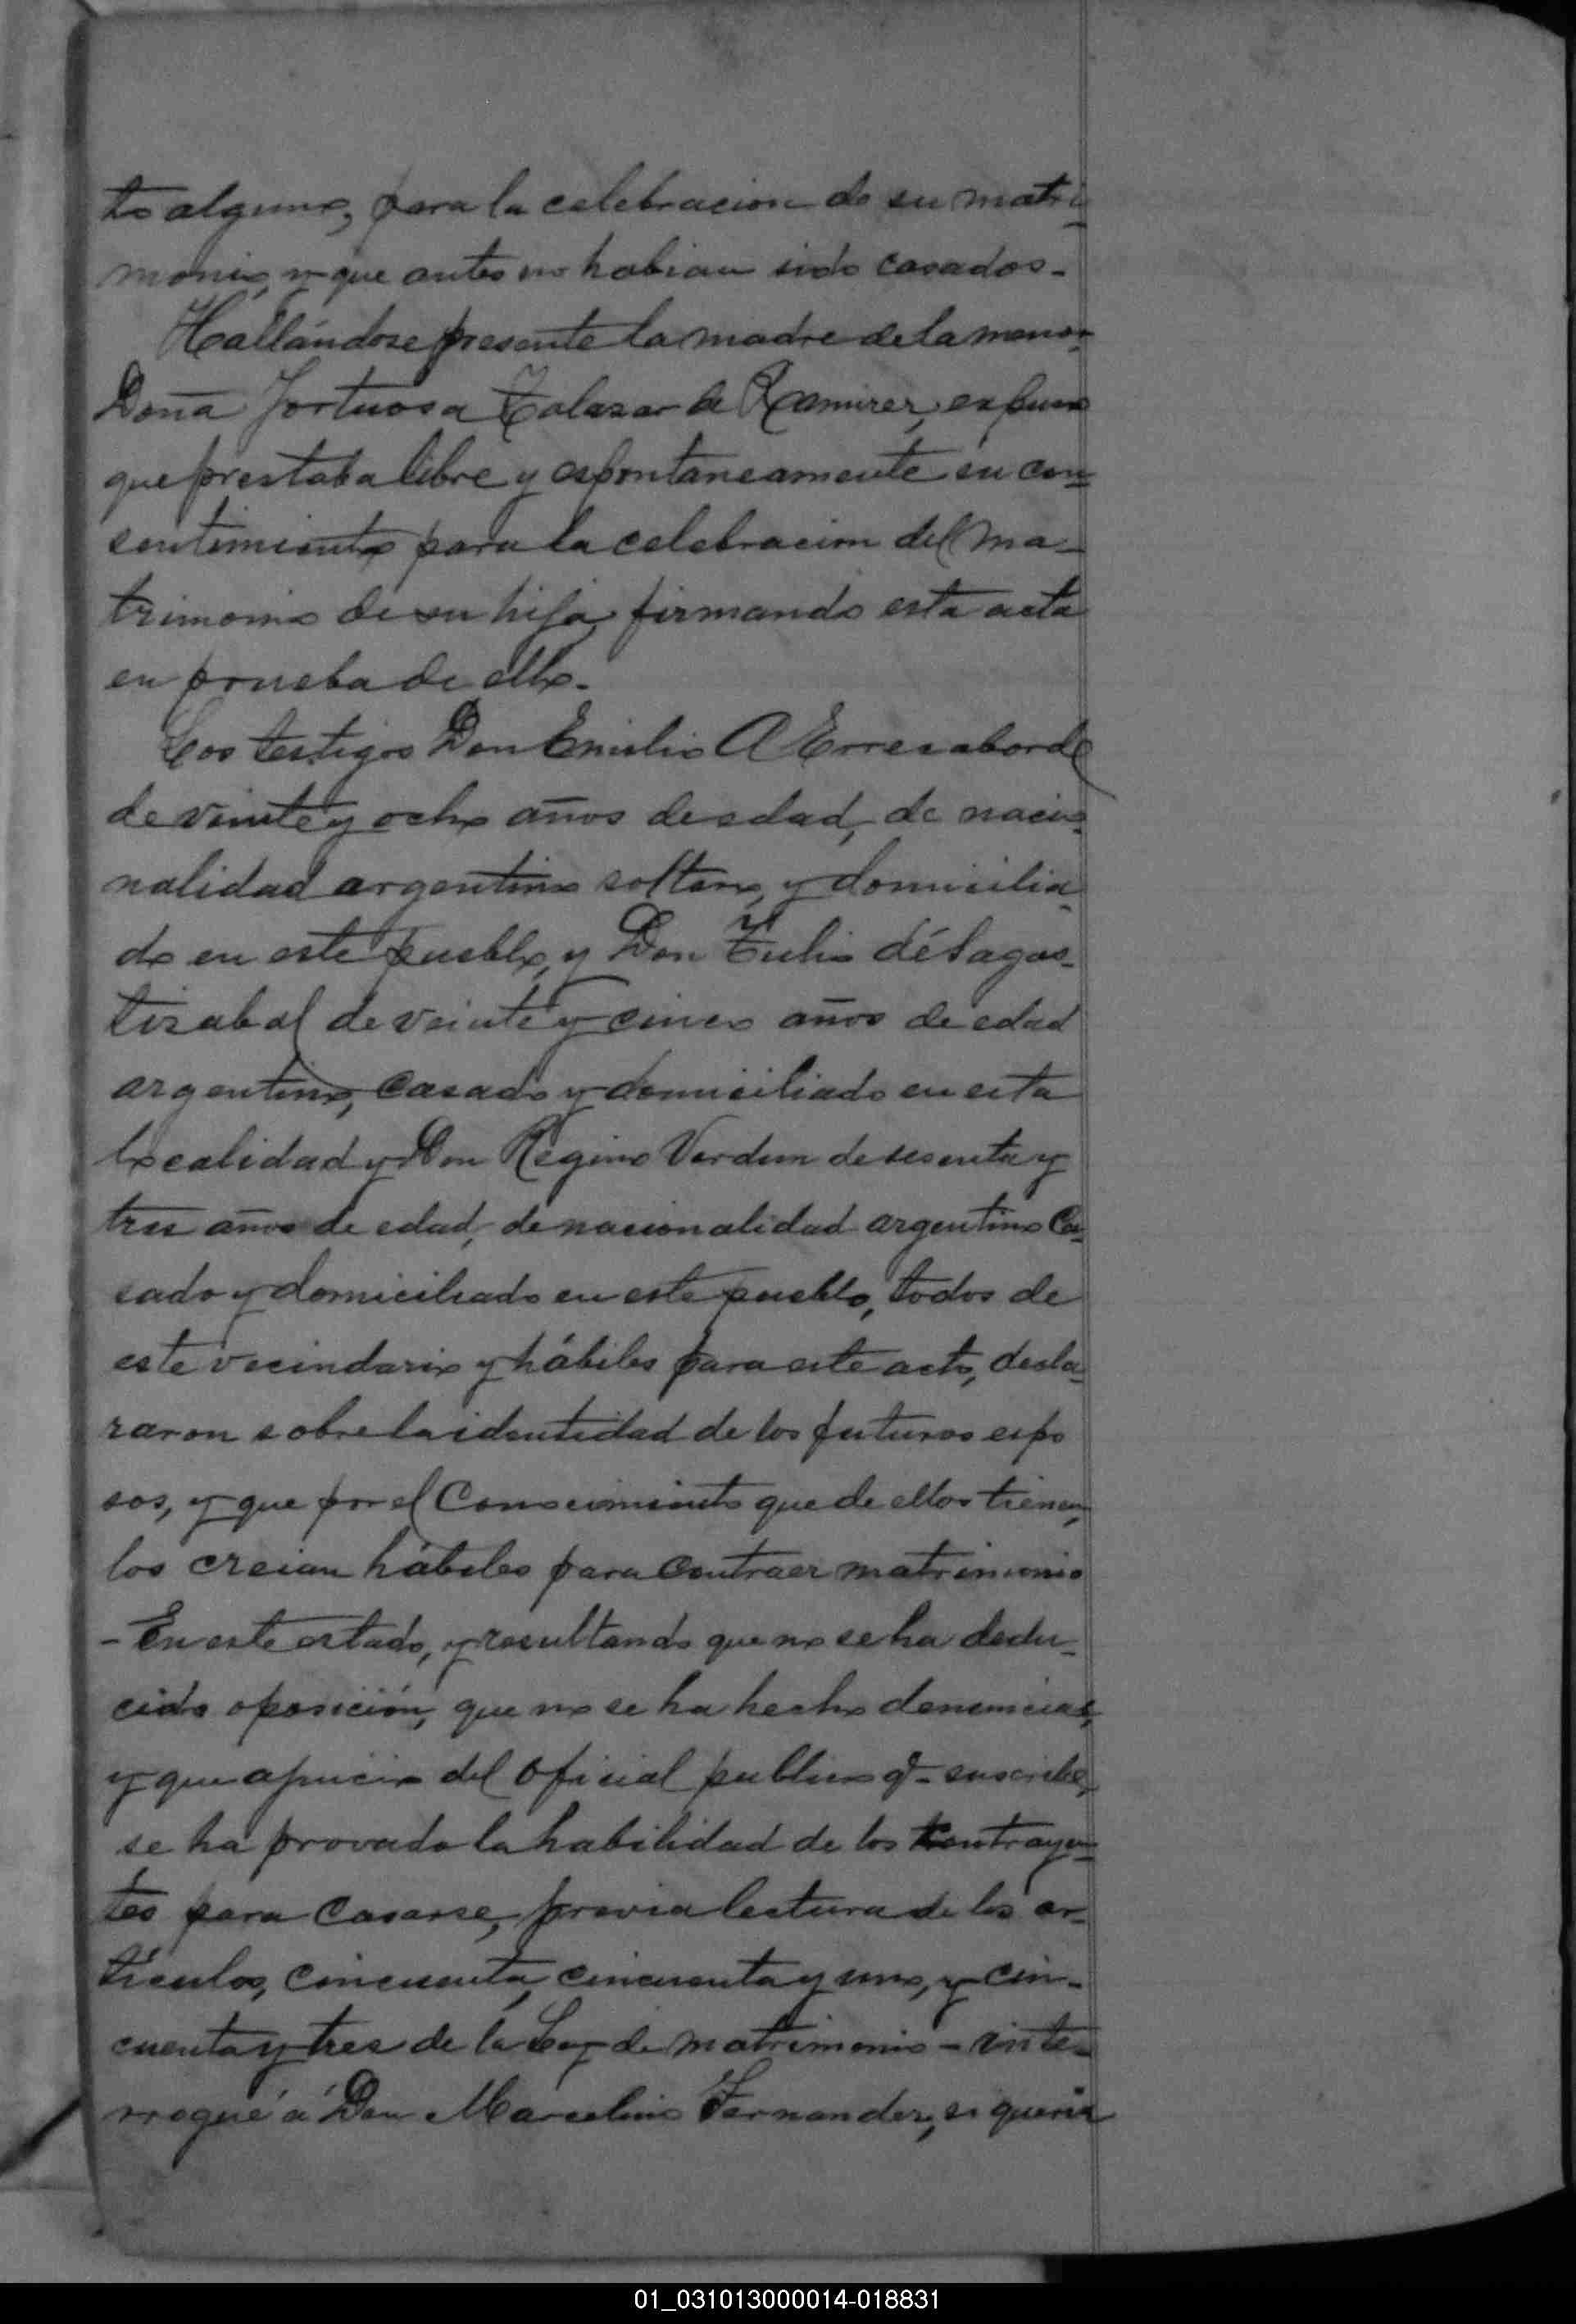 to alguno, para la celebracion de su matri-
monio, y que antes no habian sido casados-
Hallándose presente la madre de la menor
Doña Fortuosa Salazar de Ramirez, expuso
que prestaba libre y espontaneamente su con-
sentimiento para la celebracion del ma-
trimonio de su hija, firmando esta acta
en prueba de ello-
Los testigos Don Emilio A Errecaborde
de veinte y ocho años de edad, de nacio-
nalidad argentino soltero, y domicilia-
do en este pueblo, y Don Tulio de Lagos-
tizabal de veinte y cinco años de edad
argentino, casado y domiciliado en esta
localidad y Don Regino Verdun de sesenta y
tres años de edad, de nacionalidad argentino Ca-
sado y domiciliado en este pueblo, todos de
este vecindario y hábiles para este acto, decla-
raron sobre la identidad de los futuros espo
sos, y que por el Conocimiento que de ellos tienen,
los creian hábiles para contraer matrimonio
- En este estado, y resultando que no se ha dedu-
cido oposición, que no se ha hecho denuncias,
y que ajuicio del oficial publico q- suscribe,
se ha provado la habilidad de los contrayen-
tes para casarse, previa lectura de los ar-
tículos, cincuenta, cincuenta y uno, y cin-
cuenta y tres de la Ley de matrimonio - inte-
rrogué á Don Marcelino Fernandez, si queria
01_031013000014-018831